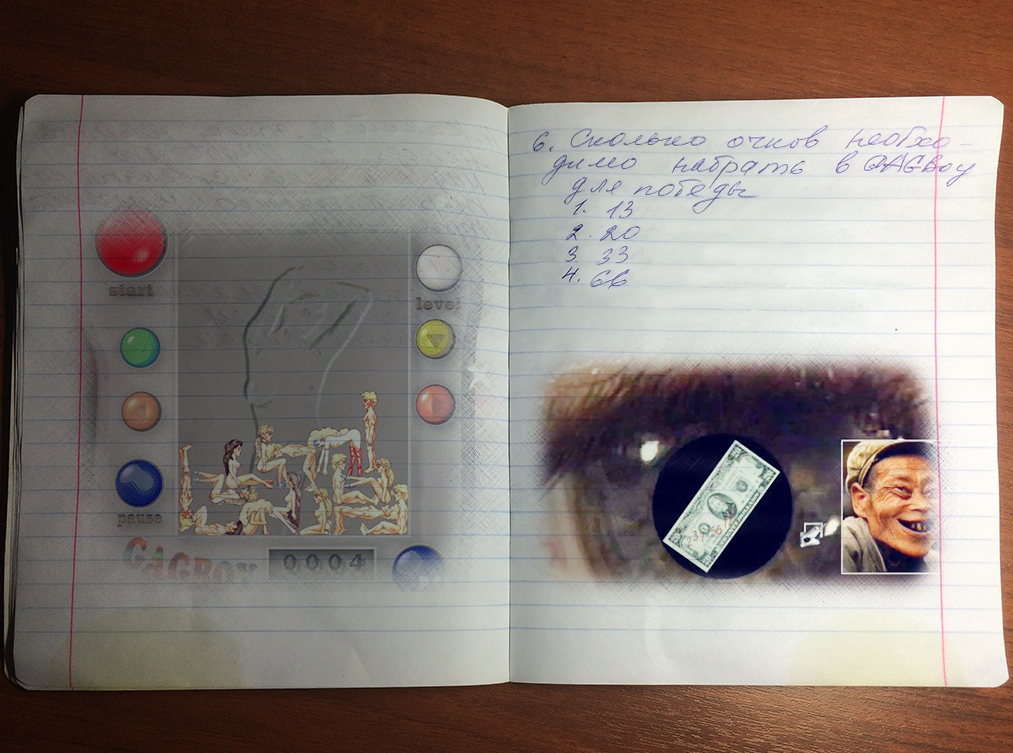 start
level
pause
GAGBOY
0004
6. Сколько очков необхо-
димо набрать в GAGBoy
для победы
1. 13
2. 20
3. 33
4. 66